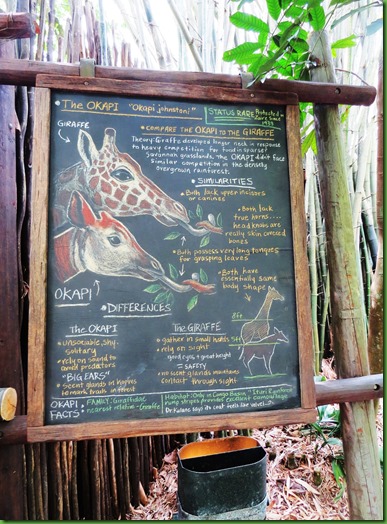 • The OKAPI "Okapi johnstoni"
STATUS RARE Protected
since
1933
GIRAFFE
• COMPARE THE OKAPI TO THE GIRAFFE
Theory: Giraffe developed longer neck in response
to heavy competition for food in sparser
savannah grasslands. The OKAPI didn't face
similar competition in the densely
overgrown rainforest.
• SIMILARITIES
• Both lack upper incisors
or canines
• Both lack
true horns....
head knobs are
really skin covered
bones
• Both possess very long tongues
for grasping leaves
• Both have
essentially same
body shape
OKAPI
• DIFFERENCES
The OKAPI
• Unsociable, shy,
solitary
• rely on sound to
avoid predators
"BIG EARS"
• Scent glands in hooves
to mark trails in forest
The GIRAFFE
• gather in small herds
• rely on sight
good eyes + great height
= SAFETY
• no scent glands maintains
contact through sight
8ft
5ft
OKAPI
FACTS
FAMILY: Giraffidae
nearest relative - Giraffe
Habitat: Only in Congo Basin Ituri Rainforest
rump stripes provide excellent camouflage
Dr. Kulanu says its coat feels like velvet